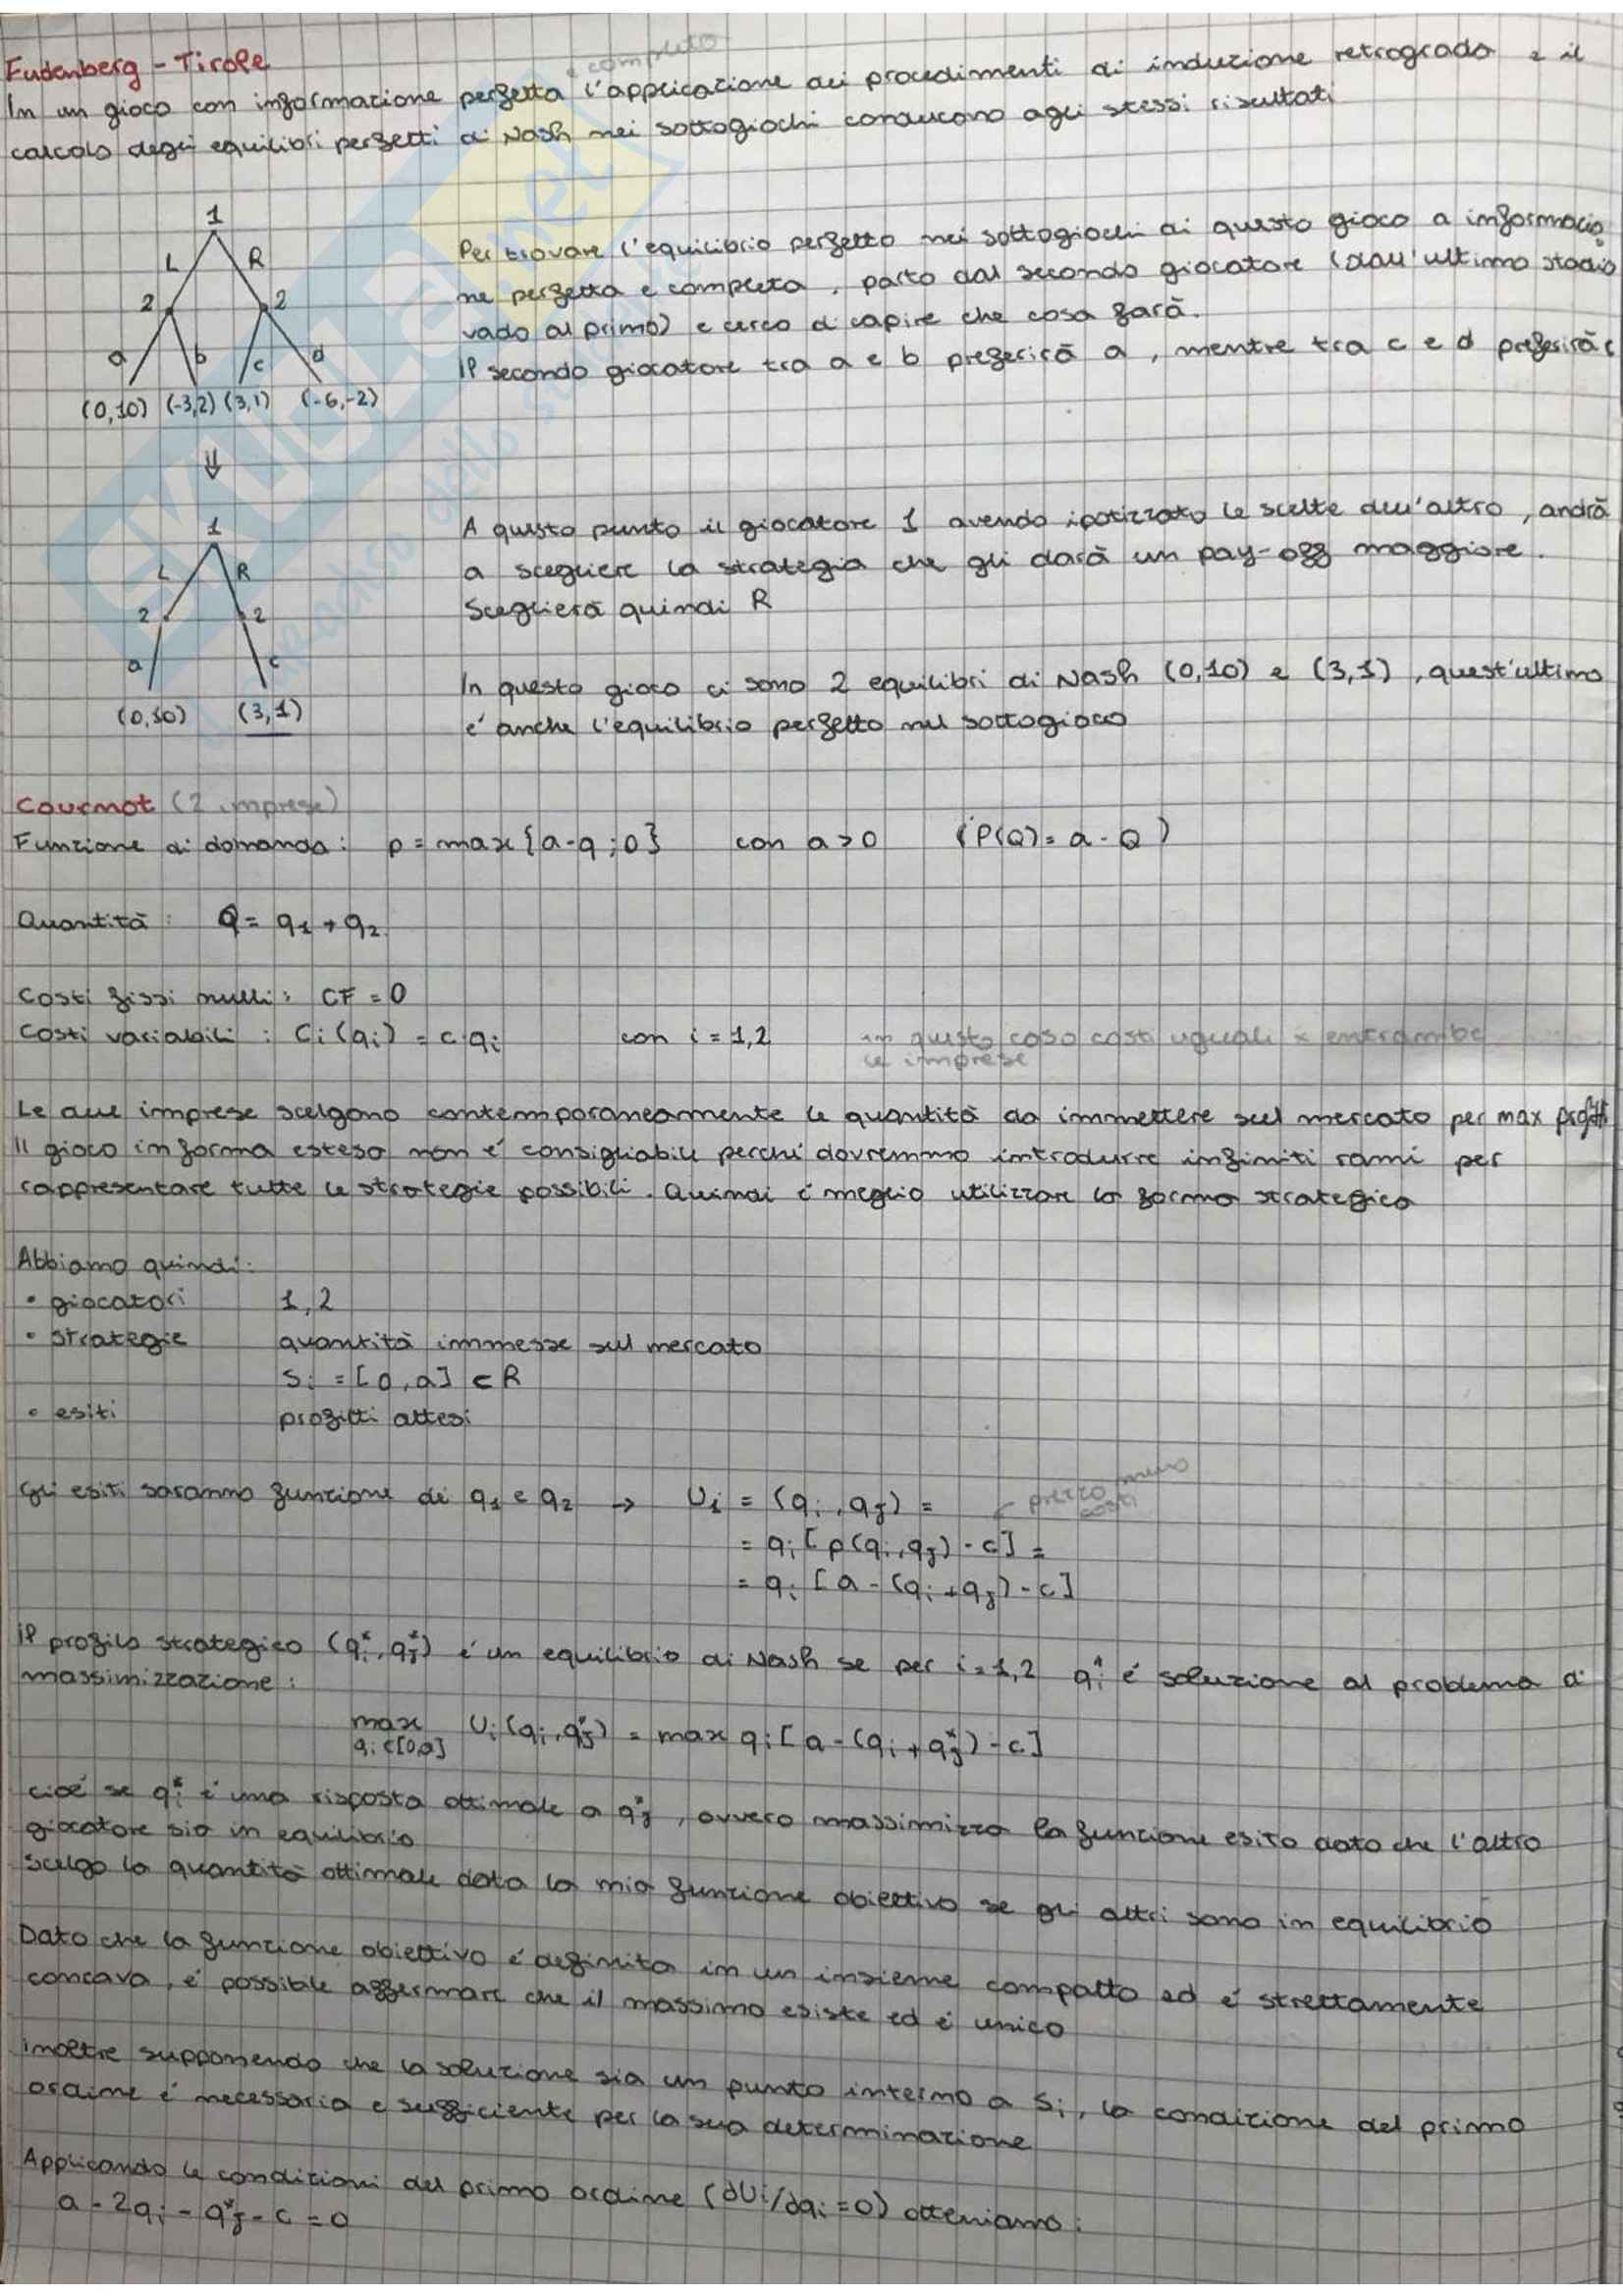 Fudenberg - Tirole
e completa
In un gioco con informazione perfetta l'applicazione dei procedimenti di induzione retrograda e il
calcolo degli equilibri perfetti di Nash nei sottogiochi conducono agli stessi risultati
1
L R
2 2
a b c d
(0,10) (-3,2) (3,1) (-6,-2)
Per trovare l'equilibrio perfetto nei sottogiochi di questo gioco a informazio
ne perfetta e completa, parto dal secondo giocatore (dall'ultimo stadio
vado al primo) e cerco di capire che cosa farà.
Il secondo giocatore tra a e b preferirà a, mentre tra c e d preferirà c
⇓
1
L R
2 2
a c
(0,10) (3,1)
A questo punto il giocatore 1 avendo ipotizzato le scelte dell'altro, andrà
a scegliere la strategia che gli darà un pay-off maggiore.
Sceglierà quindi R
In questo gioco ci sono 2 equilibri di Nash (0,10) e (3,1), quest'ultimo
é anche l'equilibrio perfetto nel sottogioco
Cournot (2 imprese)
Funzione di domanda: p = max{a-q;0} con a>0 (P(Q)= a-Q)
Quantità: Q = q1 + q2
Costi fissi nulli: CF = 0
Costi variabili: Ci(qi) = c·qi con i = 1,2 in questo caso costi uguali x entrambe
le imprese
Le due imprese scelgono contemporaneamente le quantità da immettere sul mercato per max profitti
Il gioco in forma estesa non é consigliabile perché dovremmo introdurre infiniti rami per
rappresentare tutte le strategie possibili. Quindi é meglio utilizzare la forma strategica
Abbiamo quindi:
• giocatori 1,2
• strategie quantità immesse sul mercato
Si = [0,a] ⊂ R
• esiti profitti attesi
Gli esiti saranno funzione di q1 e q2 → Ui = (qi, qj) =
prezzo meno
costi
= qi [p(qi,qj) - c] =
= qi [a - (qi+qj) - c]
Il profilo strategico (qi*, qj*) é un equilibrio di Nash se per i=1,2 qi* é soluzione al problema di
massimizzazione:
max Ui(qi,qj*) = max qi[a-(qi+qj*)-c]
qi∈[0,a]
cioé se qi* é una risposta ottimale a qj*, ovvero massimizzo la funzione esito dato che l'altro
giocatore sia in equilibrio
Scelgo la quantità ottimale data la mia funzione obiettivo se gli altri sono in equilibrio
Dato che la funzione obiettivo é definita in un insieme compatto ed é strettamente
concava, é possibile affermare che il massimo esiste ed é unico
Inoltre supponendo che la soluzione sia un punto interno a Si, la condizione del primo
ordine é necessaria e sufficiente per la sua determinazione
Applicando le condizioni del primo ordine (∂Ui/∂qi=0) otteniamo:
a - 2qi - qj* - c = 0